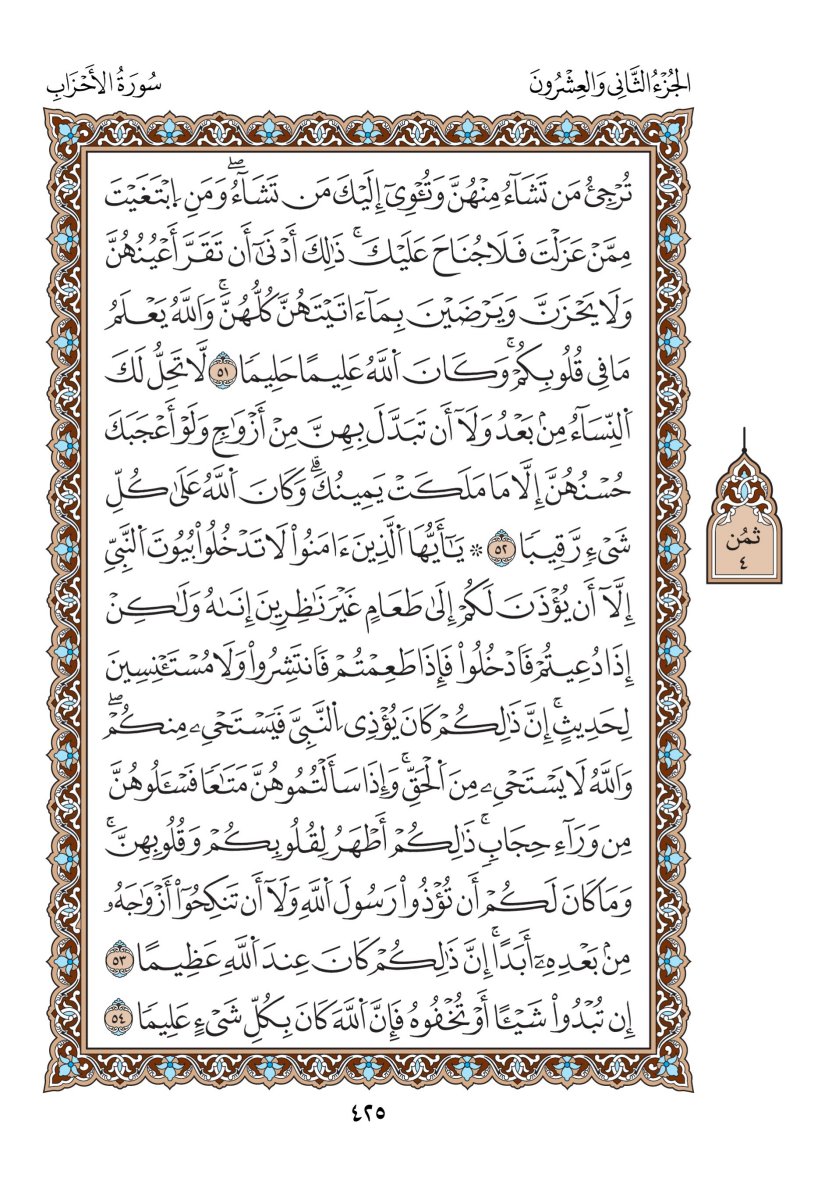 الجُزْءُ الثَّانِي وَالعِشْرُونَ
سُورَةُ الأَحْزَابِ
تُرۡجِئُ مَن تَشَآءُ مِنۡهُنَّ وَتُـْٔوِيٓ إِلَيۡكَ مَن تَشَآءُۖ وَمَنِ اِ۪بۡتَغَيۡتَ
مِمَّنۡ عَزَلۡتَ فَلَا جُنَاحَ عَلَيۡكَۚ ذَٰلِكَ أَدۡنَىٰٓ أَن تَقَرَّ أَعۡيُنُهُنَّ
وَلَا يَحۡزَنَّ وَيَرۡضَيۡنَ بِمَآ ءَاتَيۡتَهُنَّ كُلُّهُنَّۚ وَاَللَّهُ يَعۡلَمُ
مَا فِي قُلُوبِكُمۡۚ وَكَانَ اَ۬للَّهُ عَلِيمًا حَلِيمٗا ٥١ لَّا تَحِلُّ لَكَ
اَ۬لنِّسَآءُ مِنۢ بَعۡدُ وَلَآ أَن تَبَدَّلَ بِهِنَّ مِنۡ أَزۡوَٰجٖ وَلَوۡ أَعۡجَبَكَ
حُسۡنُهُنَّ إِلَّا مَا مَلَكَتۡ يَمِينُكَۗ وَكَانَ اَ۬للَّهُ عَلَىٰ كُلِّ
شَيۡءٖ رَّقِيبٗا ٥٢ ۞ يَٰٓأَيُّهَا اَ۬لَّذِينَ ءَامَنُواْ لَا تَدۡخُلُواْ بُيُوتَ اَ۬لنَّبِيِّ
إِلَّآ أَن يُؤۡذَنَ لَكُمۡ إِلَىٰ طَعَامٍ غَيۡرَ نَٰظِرِينَ إِنَىٰهُ وَلَٰكِنۡ
إِذَا دُعِيتُمۡ فَاَدۡخُلُواْ فَإِذَا طَعِمۡتُمۡ فَاَنتَشِرُواْ وَلَا مُسۡتَـٔۡنِسِينَ
لِحَدِيثٍۚ إِنَّ ذَٰلِكُمۡ كَانَ يُؤۡذِي اِ۬لنَّبِيَّ فَيَسۡتَحۡيِۦ مِنكُمۡۖ
وَاَللَّهُ لَا يَسۡتَحۡيِۦ مِنَ اَ۬لۡحَقِّۚ وَإِذَا سَأَلۡتُمُوهُنَّ مَتَٰعٗا فَسۡـَٔلُوهُنَّ
مِن وَرَآءِ حِجَابٖۚ ذَٰلِكُمۡ أَطۡهَرُ لِقُلُوبِكُمۡ وَقُلُوبِهِنَّۚ
وَمَا كَانَ لَكُمۡ أَن تُؤۡذُواْ رَسُولَ اَ۬للَّهِ وَلَآ أَن تَنكِحُوٓاْ أَزۡوَٰجَهُۥ
مِنۢ بَعۡدِهِۦٓ أَبَدًاۚ إِنَّ ذَٰلِكُمۡ كَانَ عِندَ اَ۬للَّهِ عَظِيمًا ٥٣
إِن تُبۡدُواْ شَيۡـًٔا أَوۡ تُخۡفُوهُ فَإِنَّ اَ۬للَّهَ كَانَ بِكُلِّ شَيۡءٍ عَلِيمٗا ٥٤
ثُمُن
٤
٤٢٥